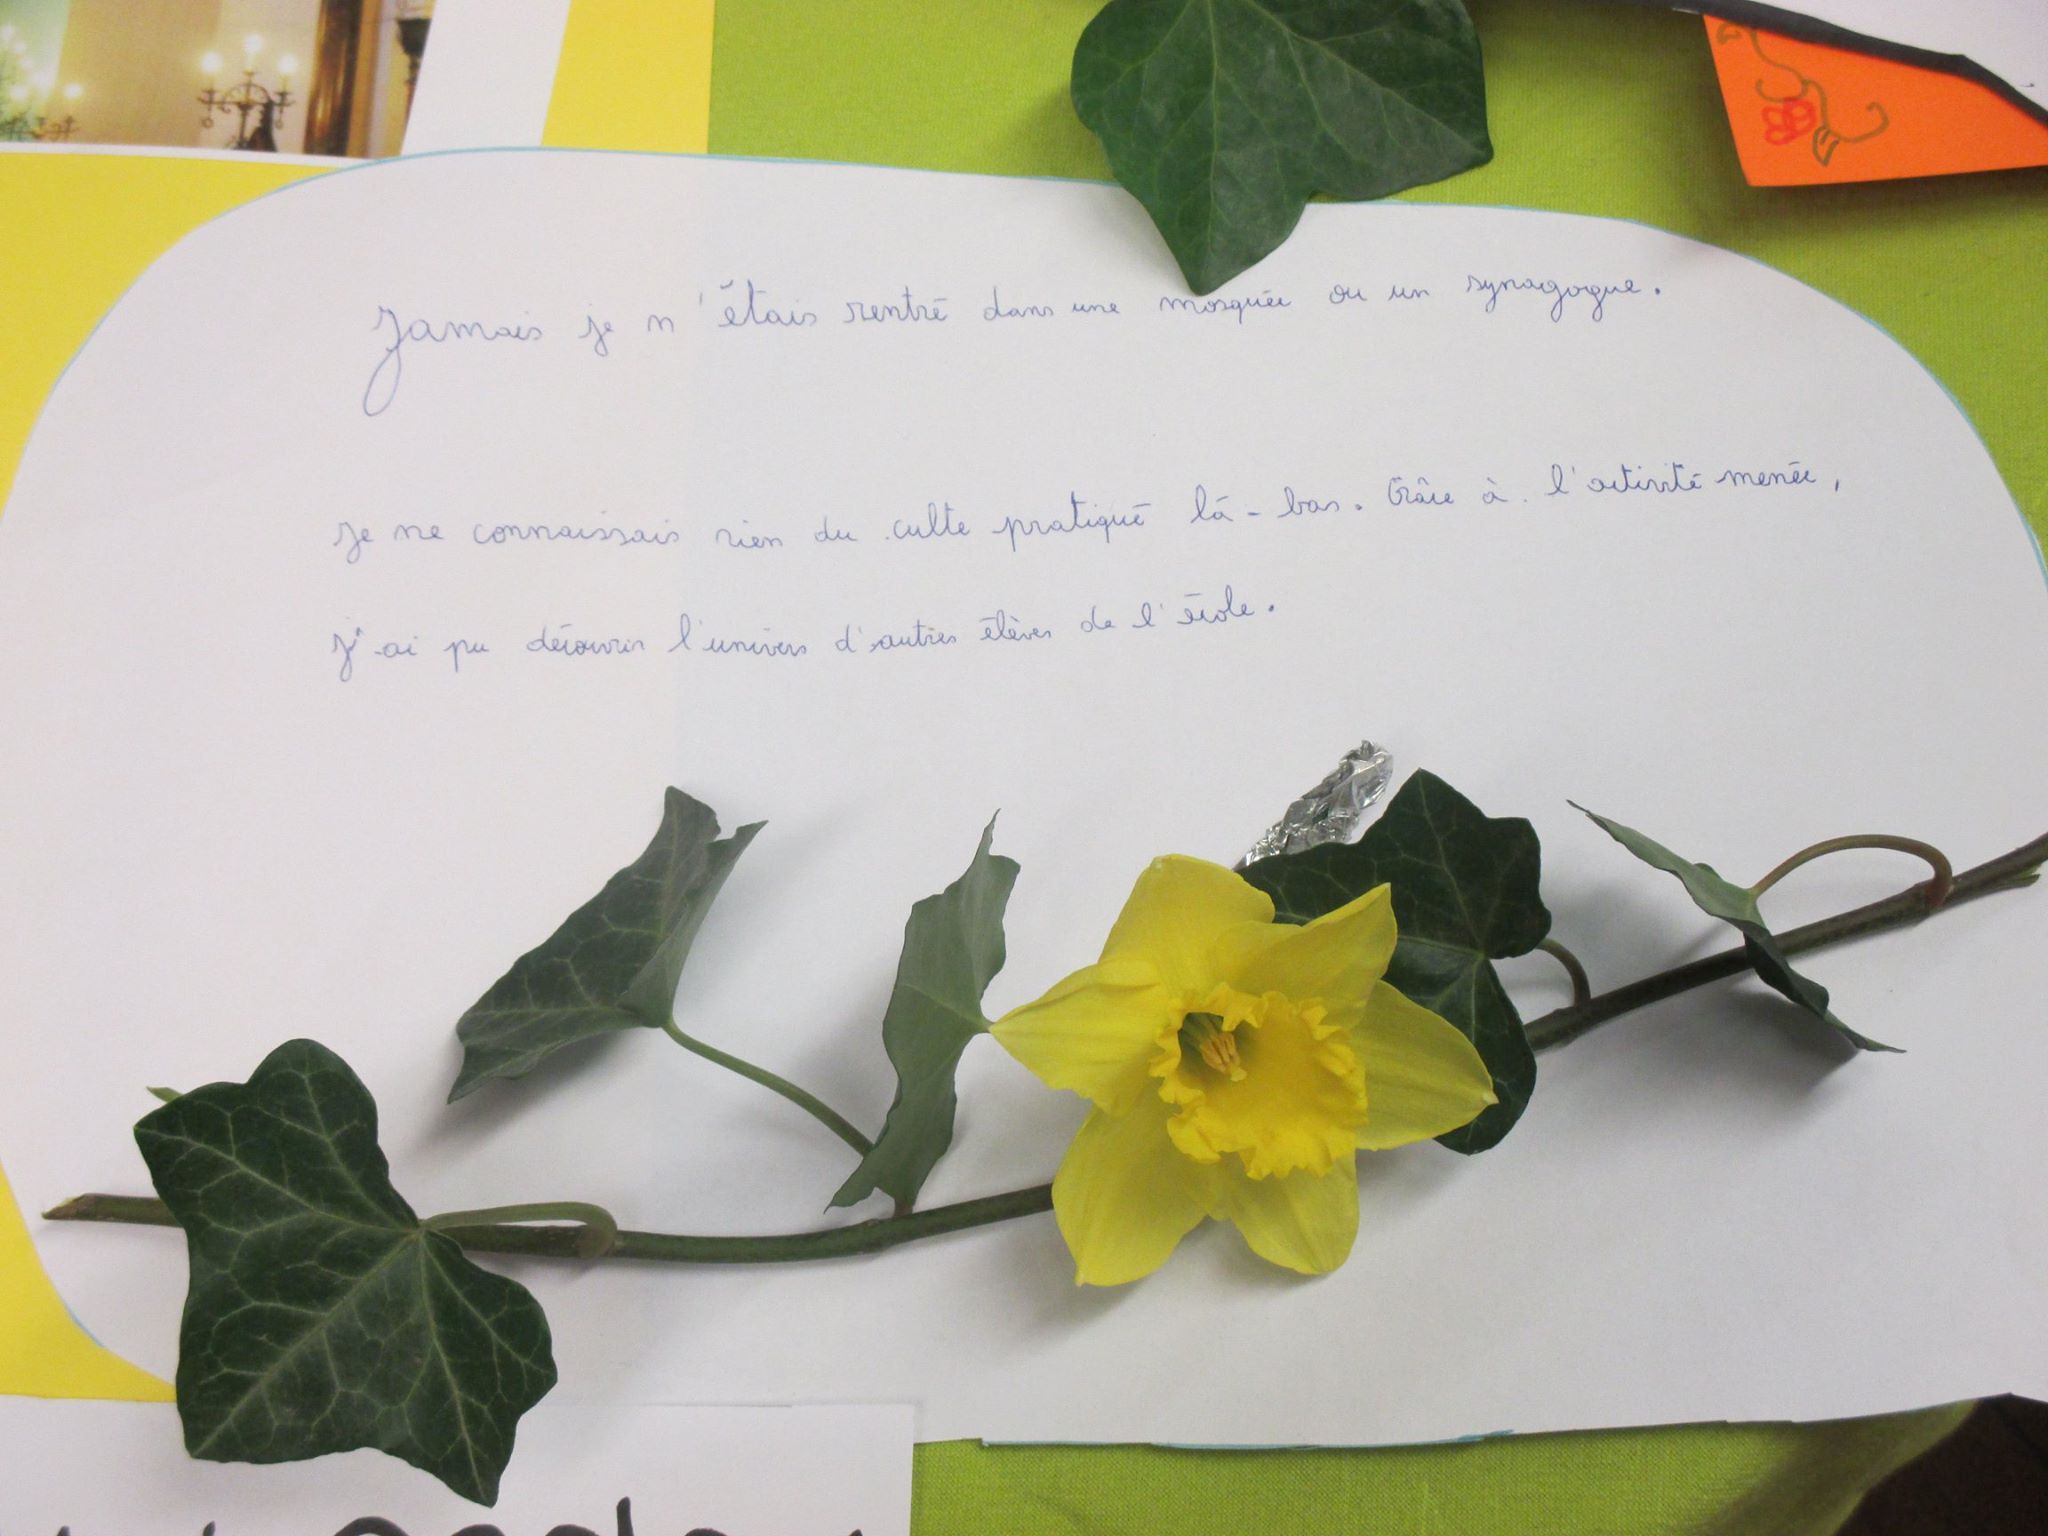 Jamais je n'étais rentré dans une mosquée ou un synagogue.
je ne connaissais rien du culte pratiqué là-bas. Grâce à l'activité menée,
j'ai pu découvrir l'univers d'autres élèves de l'école.